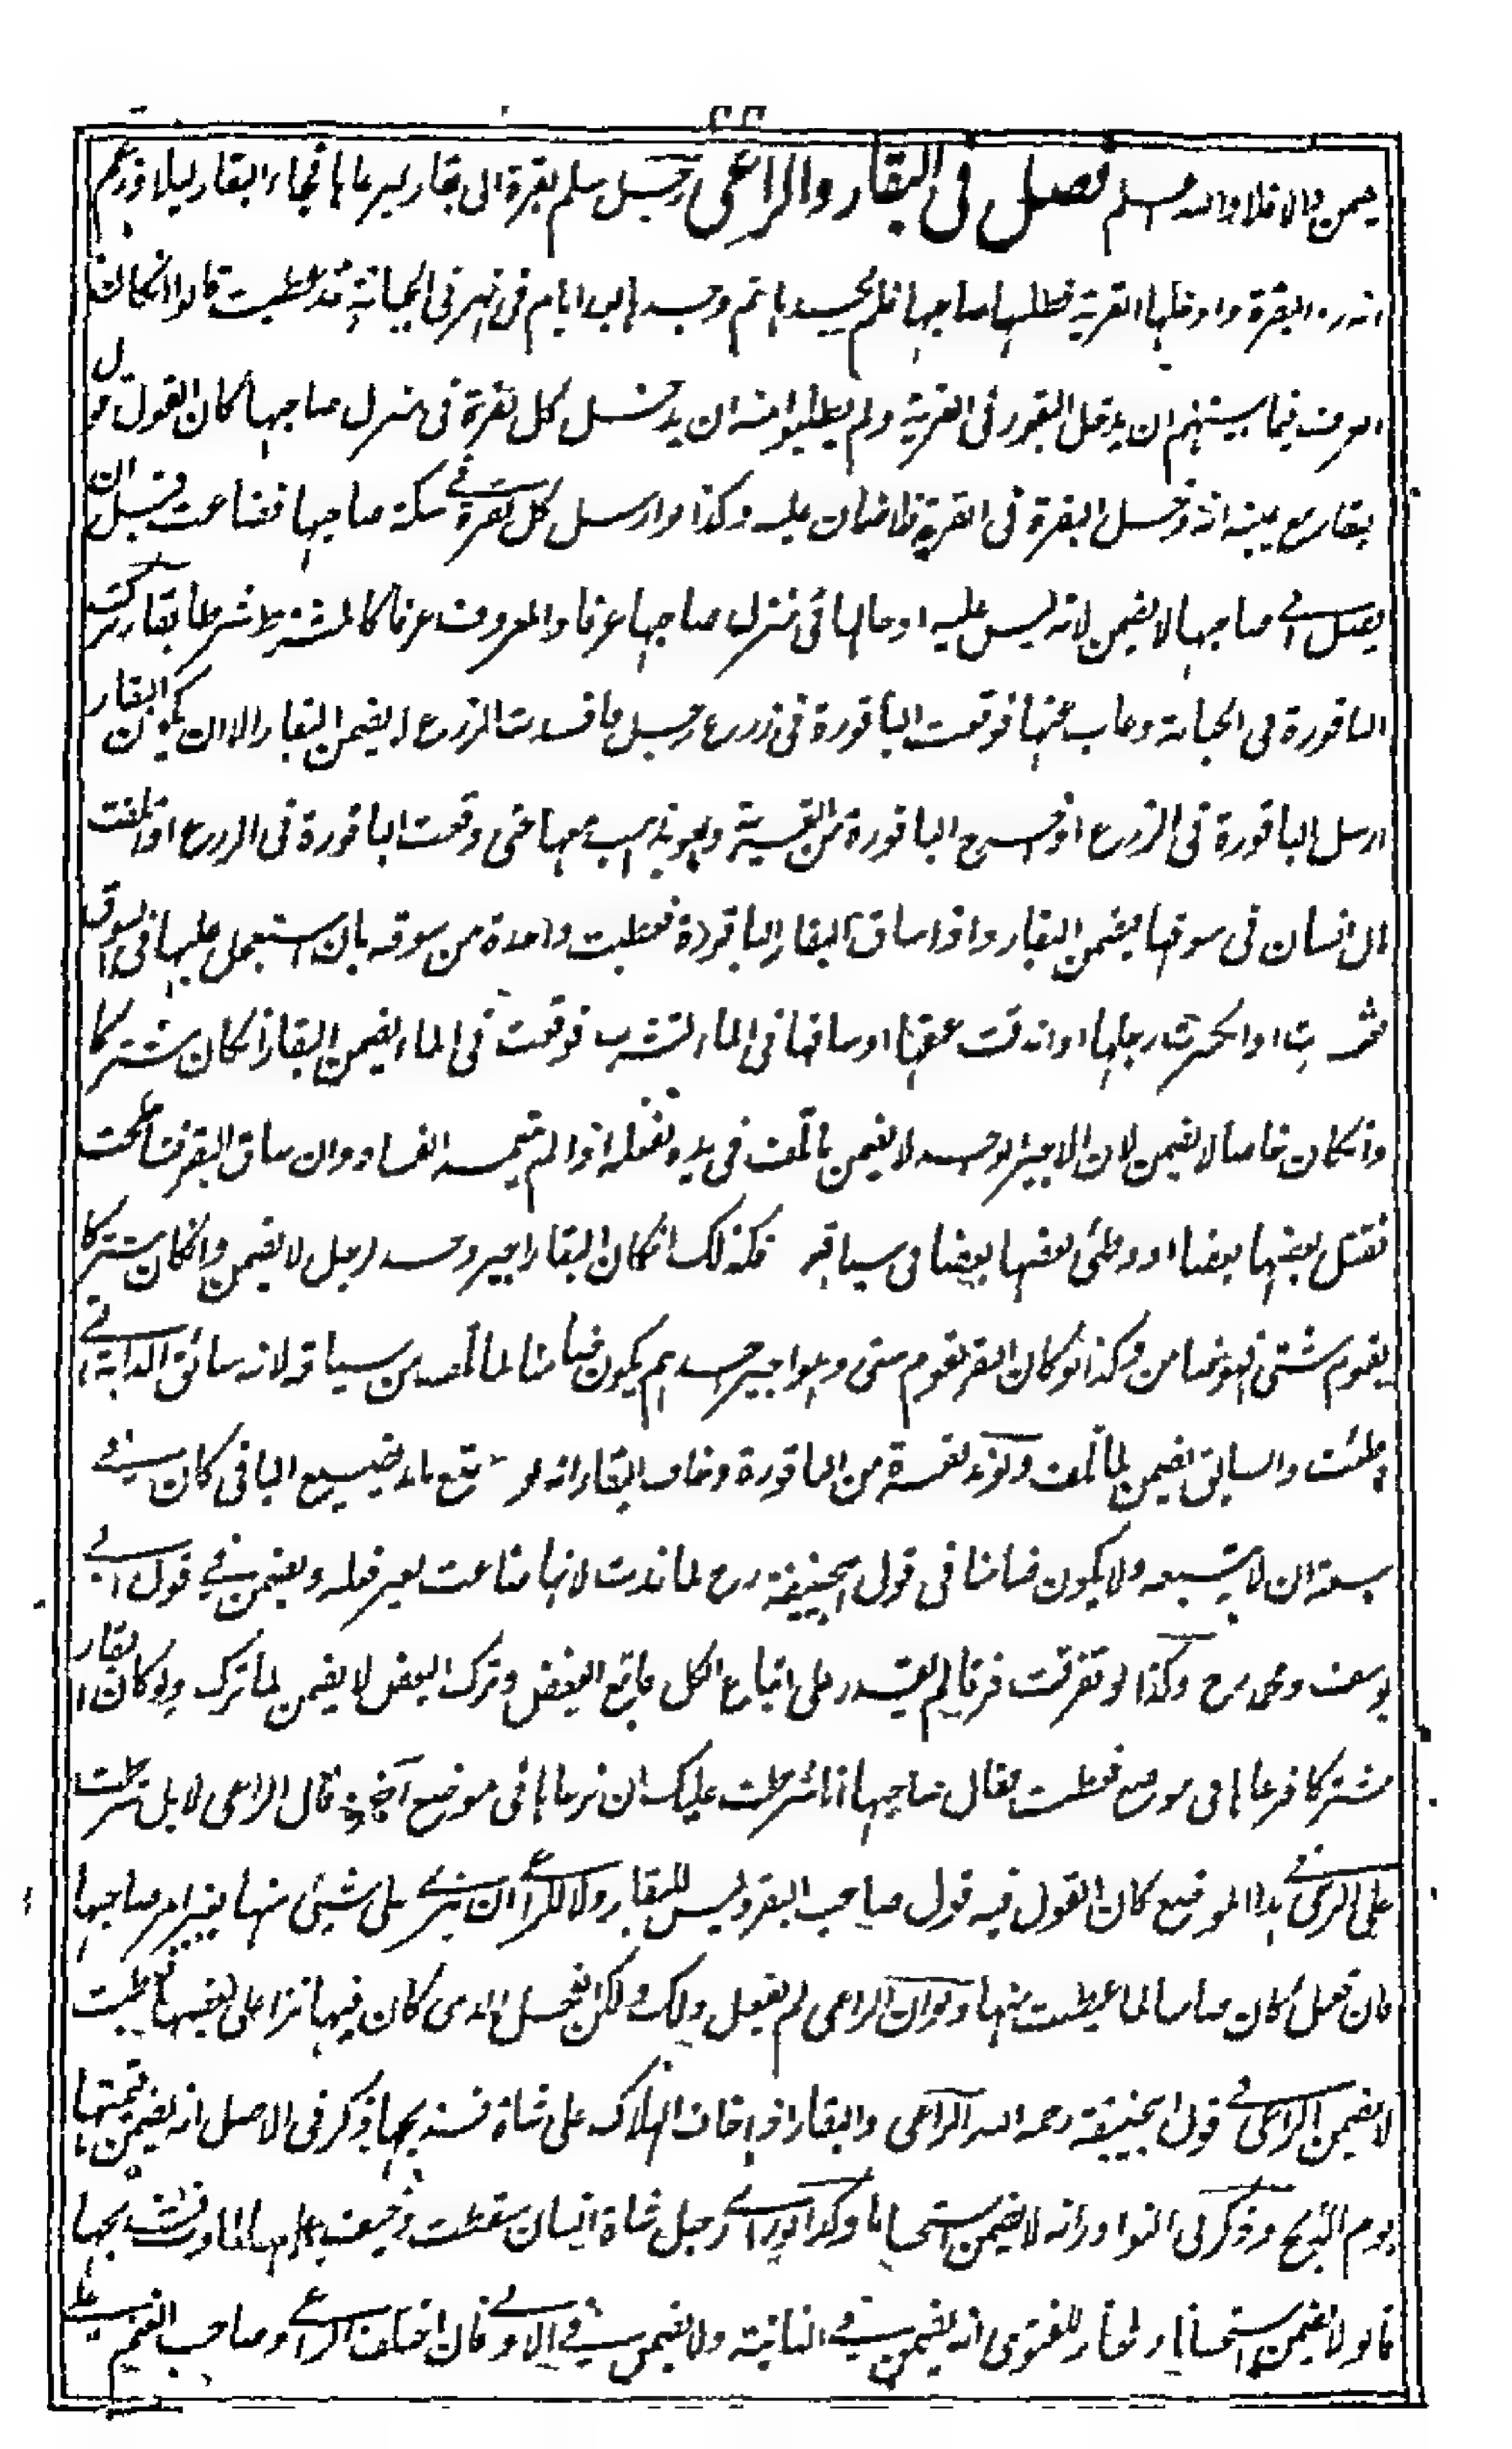 يضمن والا فلا والله اعلم فصل فى البقار والراعى رجل سلم بقرة الى بقار ليرعاها فجاء البقار ليلا وزعم
انه رد البقرة وادخلها القرية فطلبها صاحبها فلم يجدها ثم وجدها بعد ايام فى نهر فى الجبانة قد عطبت قالوا انكان
العرف فيما بينهم ان يدخل البقور فى القرية ولم يطلبوا منه ان يدخل كل بقرة فى منزل صاحبها كان القول قول
بقار مع يمينه انه ادخل البقرة فى القرية فلا ضمان عليه وكذا لو ارسل كل بقرة فى سكة صاحبها فضاعت قبل ان
يصل الى صاحبها لا يضمن لانه ليس عليه ادخالها فى منزل صاحبها عرفا والمعروف عرفا كالمشترط شرطا بقار ترك
الباقورة فى الجبانة وغاب عنها فوقعت الباقورة فى زرع رجل فافسدت الزرع لا يضمن البقار الا ان يكون البقار
ارسل الباقورة فى الزرع او اخرج الباقورة من القرية وهو يذهب معها حتى وقعت الباقورة فى الزرع او اتلفت
مال انسان فى سوقها يضمن البقار واذا ساق البقار الباقورة فعطبت واحدة من سوقه بان استعجل عليها فى السوق
فعثرت او انكسرت رجلها او اندقت عنقها او ساقها فى الماء لتشرب فوقعت فى الماء يضمن البقار انكان مشتركا
وانكان خاصا لا يضمن لان الاجير الوحد لا يضمن ما تلف فى يده بفعله اذا لم يتعمد الفساد وان ساق البقر فتناطحت
فقتل بعضها بعضا او وطئ بعضها بعضا فى سياقه فكذلك انكان البقار اجير وحد لرجل لا يضمن وانكان مشتركا
بقوم شتى فهو ضامن وكذا لو كان البقر لقوم شتى وهو اجير احدهم يكون ضامنا لما تلف من سياقه لانه سائق الدابة التى
وطئت والسابق يضمن لما تلف ولو ند بقرة من الباقورة وخاف البقار انه لو تبع ما ند يضيع الباقى كان فى
سعة ان لا يتبعه ولا يكون ضامنا فى قول ابيحنيفة رح لما ندت لانها ضاعت بغير فعله ويضمن فى قول ابى
يوسف ومحمد رح وكذا لو تفرقت فرقا لم يقدر على اتباع الكل فاتبع البعض وترك البعض لا يضمن لما ترك ولو كان البقار
مشتركا فرعاها فى موضع فعطبت فقال صاحبها انما شرطت عليك ان ترعاها فى موضع آخر وقال الراعى لا بل شرطت
على الرعى فى هذا الموضع كان القول فيه قول صاحب البقر وليس للبقار ولا للراعى ان ينزى على شيئ منها بغير امر صاحبها
فان فعل كان ضامنا لما عطبت منها ولو ان الراعى لم يفعل ذلك ولكن الفحل الذى كان فيها نزا على بعضها فعطبت
لا يضمن الراعى فى قول ابيحنيفة رحمه الله الراعى والبقار اذا خاف الهلاك على شاة فذبحها ذكر فى الاصل انه يضمن قيمتها
يوم الذبح وذكر فى النوادر انه لا يضمن استحسانا وكذا لو راى رجل شاة انسان سقطت وخيف عليها الموت فذبحها
قالوا لا يضمن استحسانا والمختار للفتوى انه يضمن فى الثانية ولا يضمن فى الاولى فان اختلف الراعى وصاحب الغنم على